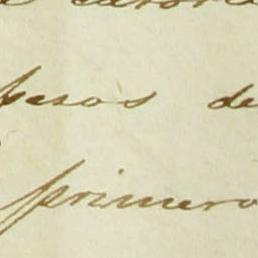 pesos de
primero